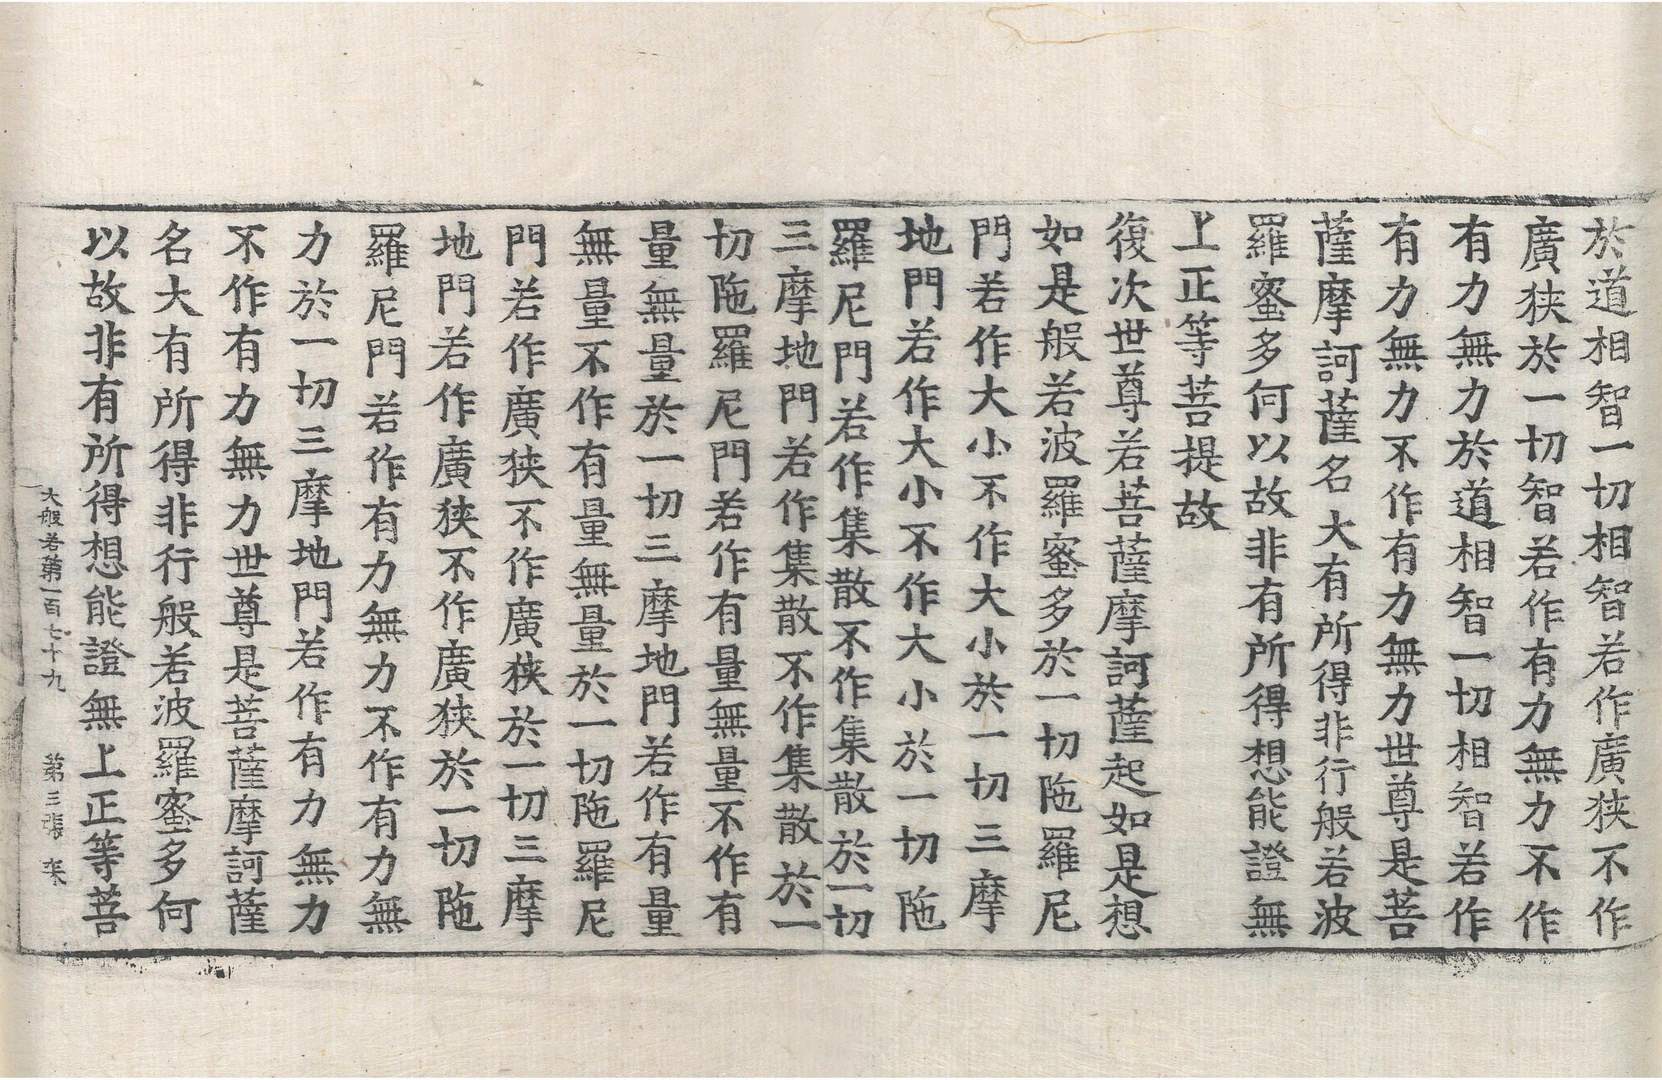 於道相智一切相智若作廣狹不作
廣狹於一切智若作有力無力不作
有力無力於道相智一切相智若作
有力無力不作有力無力世尊是菩
薩摩訶薩名大有所得非行般若波
羅蜜多何以故非有所得想能證無
上正等菩提故
復次世尊若菩薩摩訶薩起如是想
如是般若波羅蜜多於一切陁羅尼
門若作大小不作大小於一切三摩
地門若作大小不作大小於一切陁
羅尼門若作集散不作集散於一切
三摩地門若作集散不作集散於一
切陁羅尼門若作有量無量不作有
量無量於一切三摩地門若作有量
無量不作有量無量於一切陁羅尼
門若作廣狹不作廣狹於一切三摩
地門若作廣狹不作廣狹於一切陁
羅尼門若作有力無力不作有力無
力於一切三摩地門若作有力無力
不作有力無力世尊是菩薩摩訶薩
名大有所得非行般若波羅蜜多何
以故非有所得想能證無上正等菩
大般若第一百七十九 第三張 柰